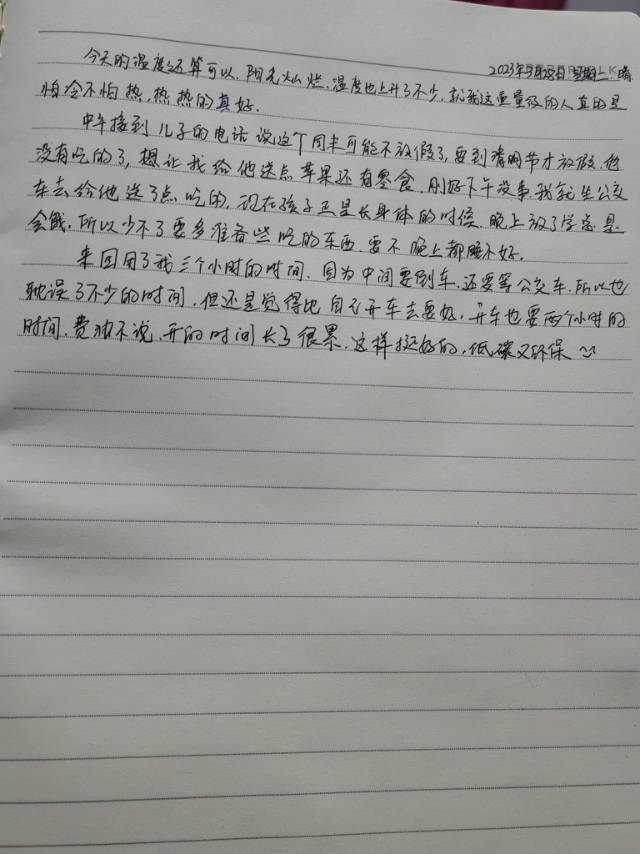 2023年3月28日 星期二 晴
今天的温度还算可以，阳光灿烂，温度也上升了不少，就我这重量级的人真的是
怕冷不怕热，热热的真好。
中午接到儿子的电话说这个周末可能不放假了，要到清明节才放假，他
没有吃的了，想让我给他送点苹果还有零食，刚好下午没事，我就坐公交
车去给他送了点吃的，现在孩子正是长身体的时候，晚上放了学总是
会饿，所以少不了要多准备些吃的东西，要不晚上都睡不好。
来回用了我三个小时的时间，因为中间要倒车，还要等公交车，所以也
耽误了不少的时间，但还是觉得比自己开车去要好，开车也要两个小时的
时间，费油不说，开的时间长了很累，这样挺好的，低碳又环保